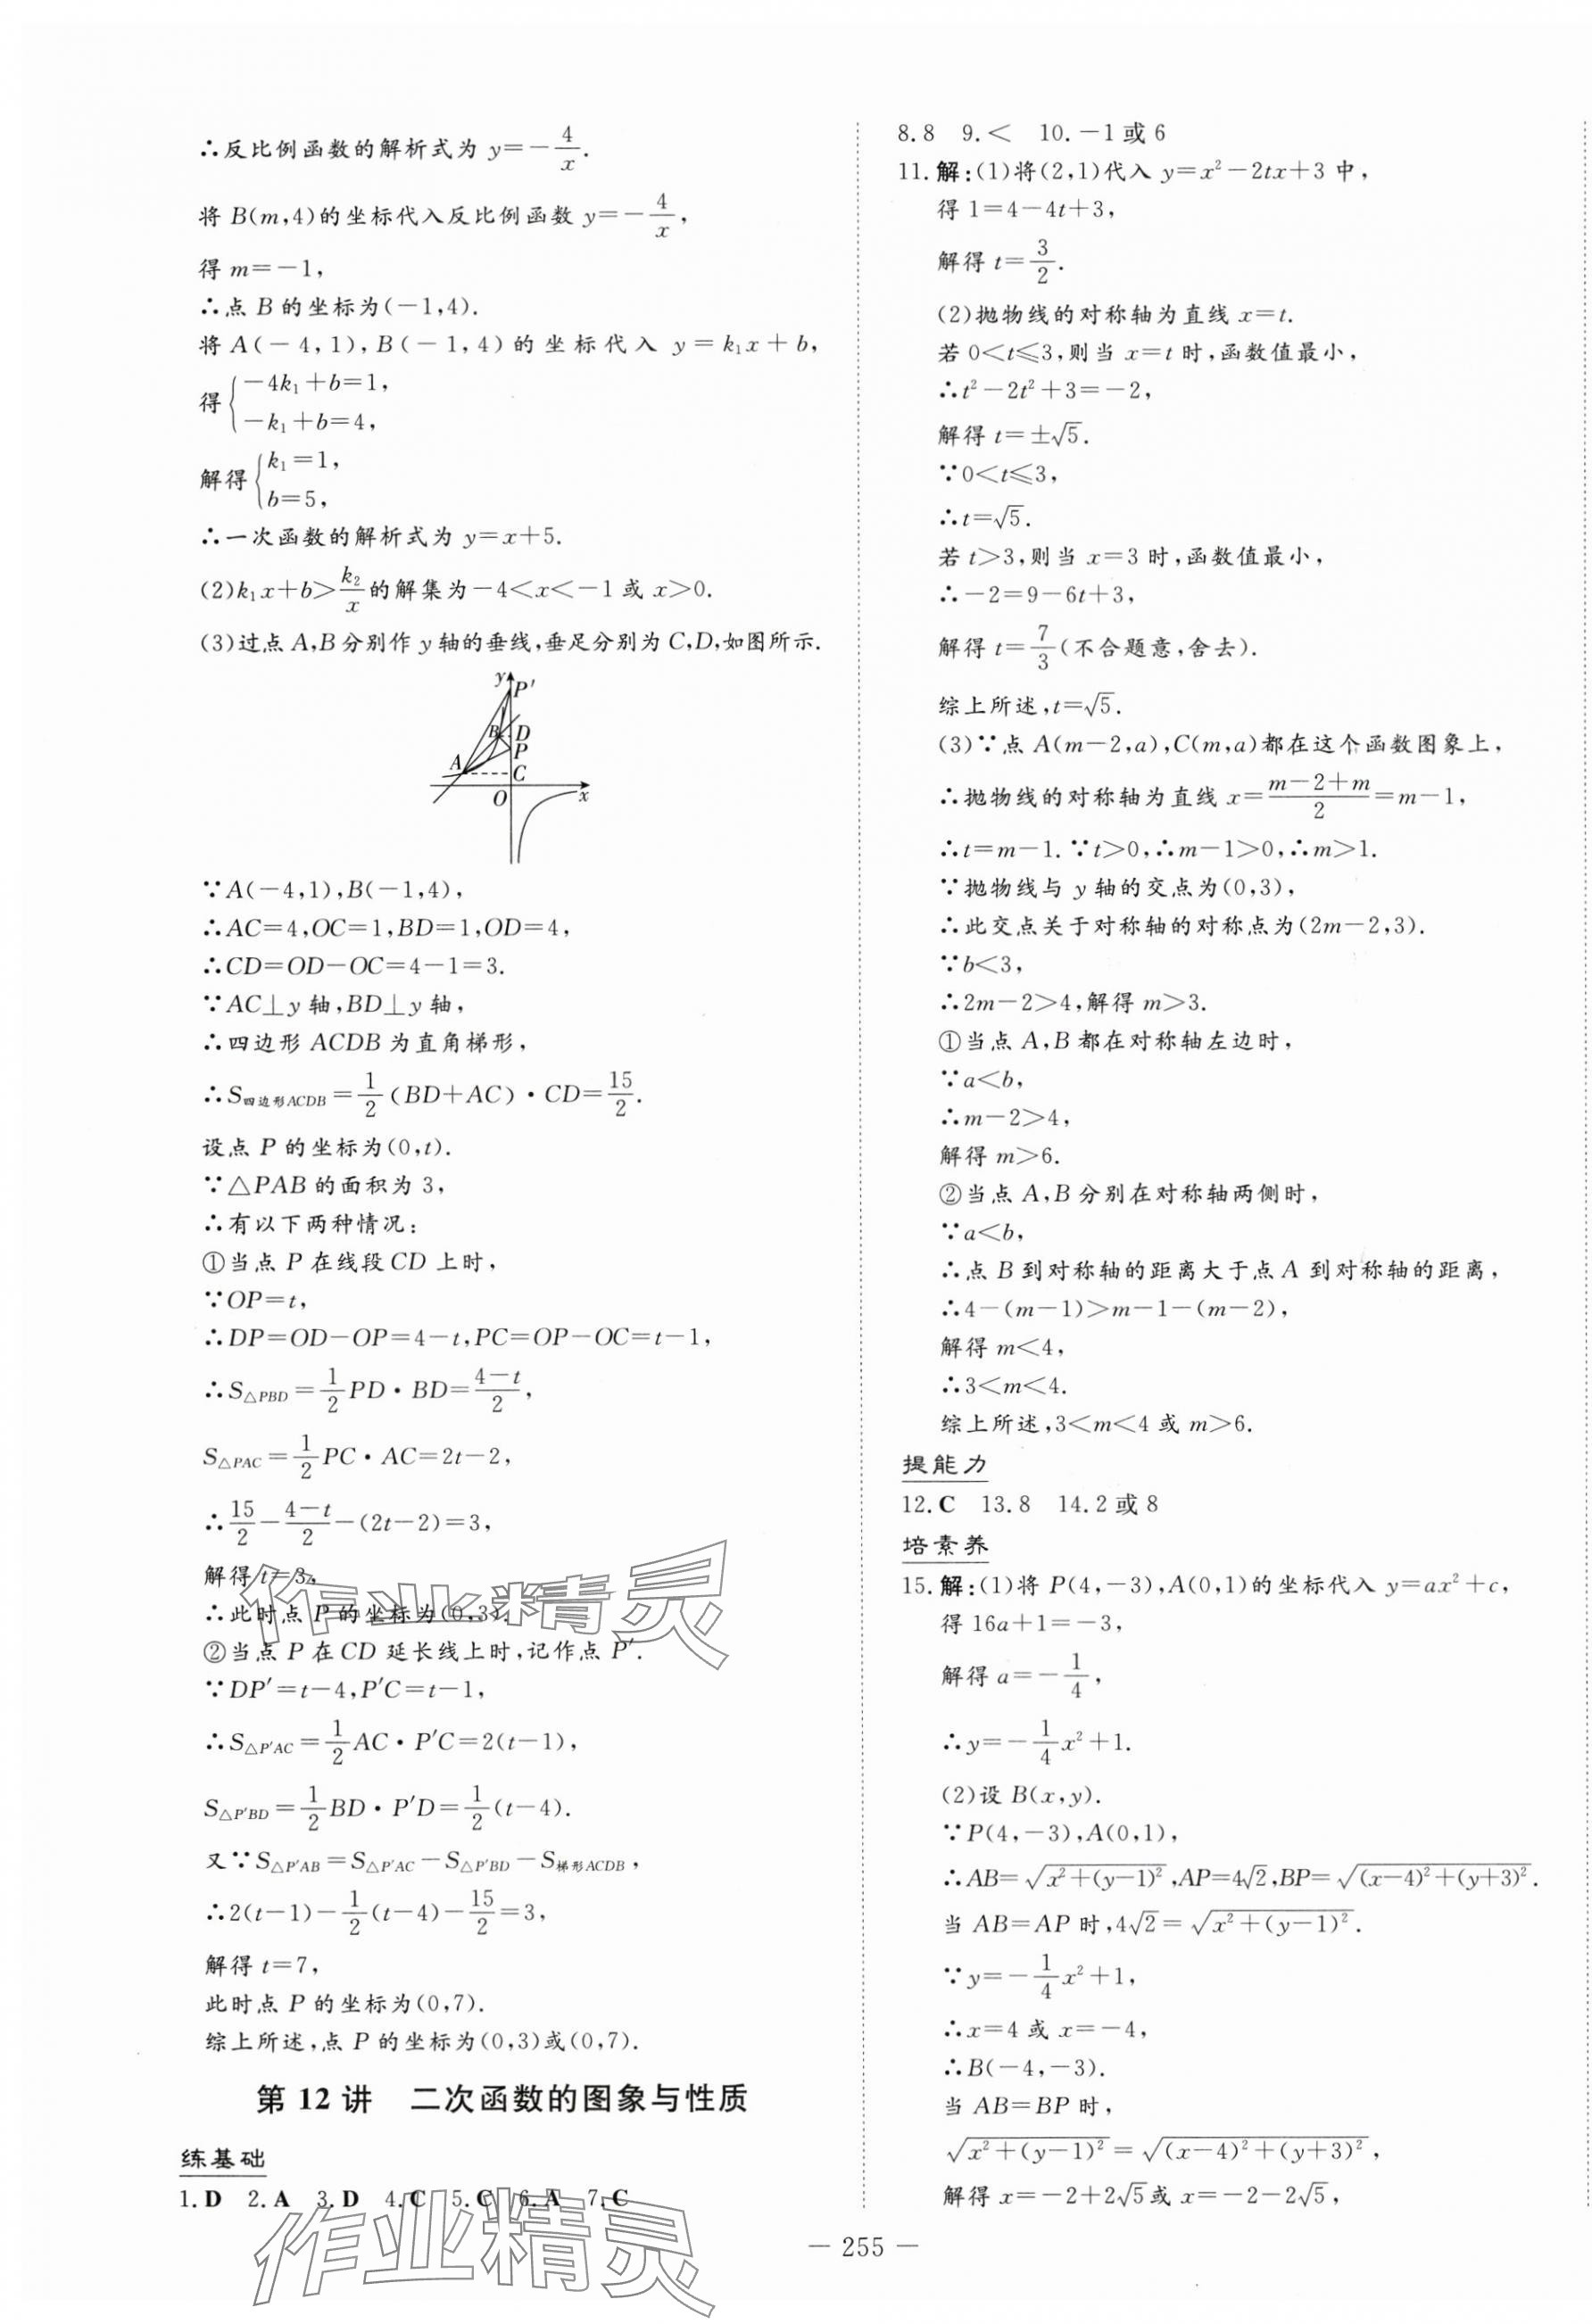 ∴反比例函数的解析式为 y=-4/x.
将 B(m,4)的坐标代入反比例函数 y=-4/x,
得 m=-1,
∴点 B 的坐标为(-1,4).
将 A(-4,1),B(-1,4)的坐标代入 y=k₁x+b,
得{-4k₁+b=1,
-k₁+b=4,
解得{k₁=1,
b=5,
∴一次函数的解析式为 y=x+5.
(2)k₁x+b>k₂/x的解集为-4<x<-1 或 x>0.
(3)过点 A,B分别作 y轴的垂线,垂足分别为 C,D,如图所示.
y P′
B D
P
A C
O x
∵A(-4,1),B(-1,4),
∴AC=4,OC=1,BD=1,OD=4,
∴CD=OD-OC=4-1=3.
∵AC⊥y轴,BD⊥y轴,
∴四边形 ACDB 为直角梯形,
∴S四边形ACDB=1/2(BD+AC)·CD=15/2.
设点 P 的坐标为(0,t).
∵△PAB 的面积为 3,
∴有以下两种情况:
①当点 P 在线段CD 上时,
∵OP=t,
∴DP=OD-OP=4-t,PC=OP-OC=t-1,
∴S△PBD=1/2PD·BD=(4-t)/2,
S△PAC=1/2PC·AC=2t-2,
∴15/2-(4-t)/2-(2t-2)=3,
解得 t=3,
∴此时点 P 的坐标为(0,3).
②当点 P 在CD 延长线上时,记作点 P′.
∵DP′=t-4,P′C=t-1,
∴S△P′AC=1/2AC·P′C=2(t-1),
S△P′BD=1/2BD·P′D=1/2(t-4).
又∵S△P′AB=S△P′AC-S△P′BD-S梯形ACDB,
∴2(t-1)-1/2(t-4)-15/2=3,
解得 t=7,
此时点 P 的坐标为(0,7).
综上所述,点 P 的坐标为(0,3)或(0,7).
第 12 讲 二次函数的图象与性质
练基础
1.D 2.A 3.D 4.C 5.C 6.A 7.C
8.8 9.< 10.-1或 6
11.解:(1)将(2,1)代入 y=x²-2tx+3 中,
得 1=4-4t+3,
解得 t=3/2.
(2)抛物线的对称轴为直线 x=t.
若 0<t≤3,则当 x=t 时,函数值最小,
∴t²-2t²+3=-2,
解得 t=±√5.
∵0<t≤3,
∴t=√5.
若 t>3,则当 x=3 时,函数值最小,
∴-2=9-6t+3,
解得 t=7/3(不合题意,舍去).
综上所述,t=√5.
(3)∵点 A(m-2,a),C(m,a)都在这个函数图象上,
∴抛物线的对称轴为直线 x=(m-2+m)/2=m-1,
∴t=m-1.∵t>0,∴m-1>0,∴m>1.
∵抛物线与 y 轴的交点为(0,3),
∴此交点关于对称轴的对称点为(2m-2,3).
∵b<3,
∴2m-2>4,解得 m>3.
①当点 A,B 都在对称轴左边时,
∵a<b,
∴m-2>4,
解得 m>6.
②当点 A,B分别在对称轴两侧时,
∵a<b,
∴点 B 到对称轴的距离大于点 A 到对称轴的距离,
∴4-(m-1)>m-1-(m-2),
解得 m<4,
∴3<m<4.
综上所述,3<m<4 或 m>6.
提能力
12.C 13.8 14.2 或 8
培素养
15.解:(1)将 P(4,-3),A(0,1)的坐标代入 y=ax²+c,
得 16a+1=-3,
解得 a=-1/4,
∴y=-1/4x²+1.
(2)设 B(x,y).
∵P(4,-3),A(0,1),
∴AB=√(x²+(y-1)²),AP=4√2,BP=√((x-4)²+(y+3)²).
当 AB=AP 时,4√2=√(x²+(y-1)²).
∵y=-1/4x²+1,
∴x=4 或 x=-4,
∴B(-4,-3).
当 AB=BP 时,
√(x²+(y-1)²)=√((x-4)²+(y+3)²),
解得 x=-2+2√5或 x=-2-2√5,
— 255 —
作业精灵
作业精灵